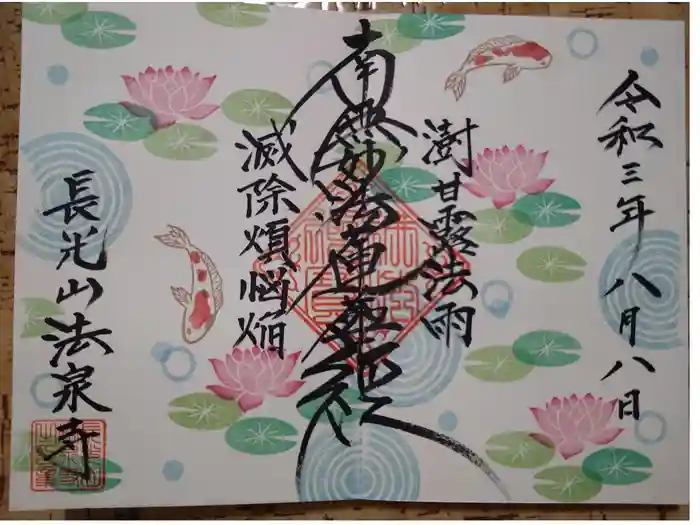 令和三年八月八日
澍甘露法雨
南無妙法蓮華経
滅除煩悩焔
長光山法泉寺